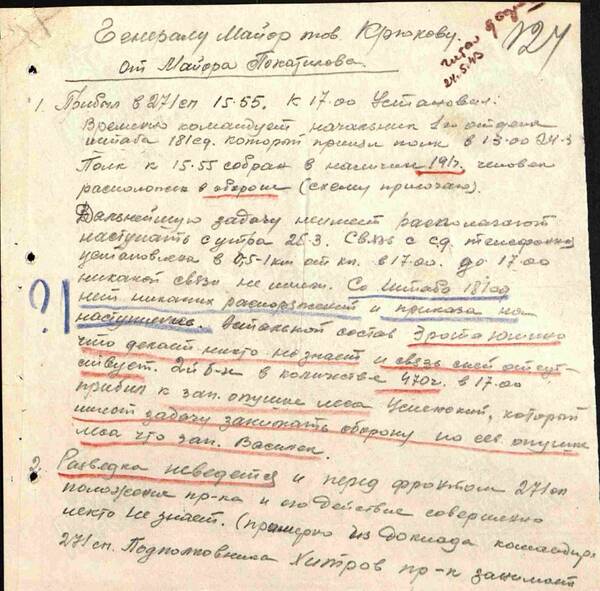 Генералу Майор тов. Крюкову.
от Майора Покатилова.
127
24.5.43
1. Прибыл в 271сп 15.55. К 17.00 Установил:
Временно командует начальник 1го отдела
штаба 181сд. который принял полк в 13.00 24.3
Полк к 15.55 собран в наличии 191г. человек
расположен в обороне (схему прилагаю).
Дальнейшую задачу имеет располагают
наступать с утра 25.3. Связь с сд. телефонная
установлена в 0,5-1км от кп. в 17.00. до 17.00
никакой связи не имел. Со штаба 181сд
?! нет никаких распоряжений и приказа на
наступление. Остальной состав
что делает никто не знает и связь с ней отсут-
ствует. 2й б-н в количестве 470ч. в 17.00
прибыл к зап. опушке леса который
имеет задачу занимать оборону по сев. опушке
леса что зап. Василек.
2. Разведка неведется и перед фронтом 271сп
положение пр-ка и его действие совершенно
некто не знает. (примерно из доклада командир.
271сп. Подполковника Хитров пр-к занимает